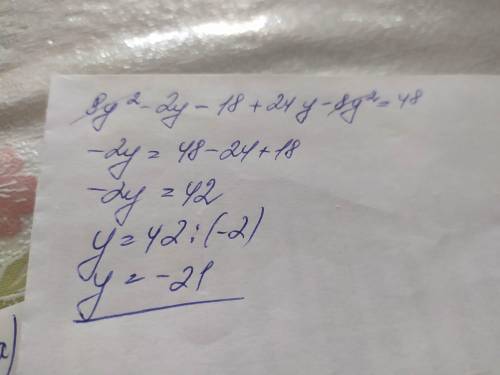 8y² - 2y - 18 + 24y - 8y² = 48
-2y = 48 - 24 + 18
-2y = 42
y = 42 : (-2)
y = -21